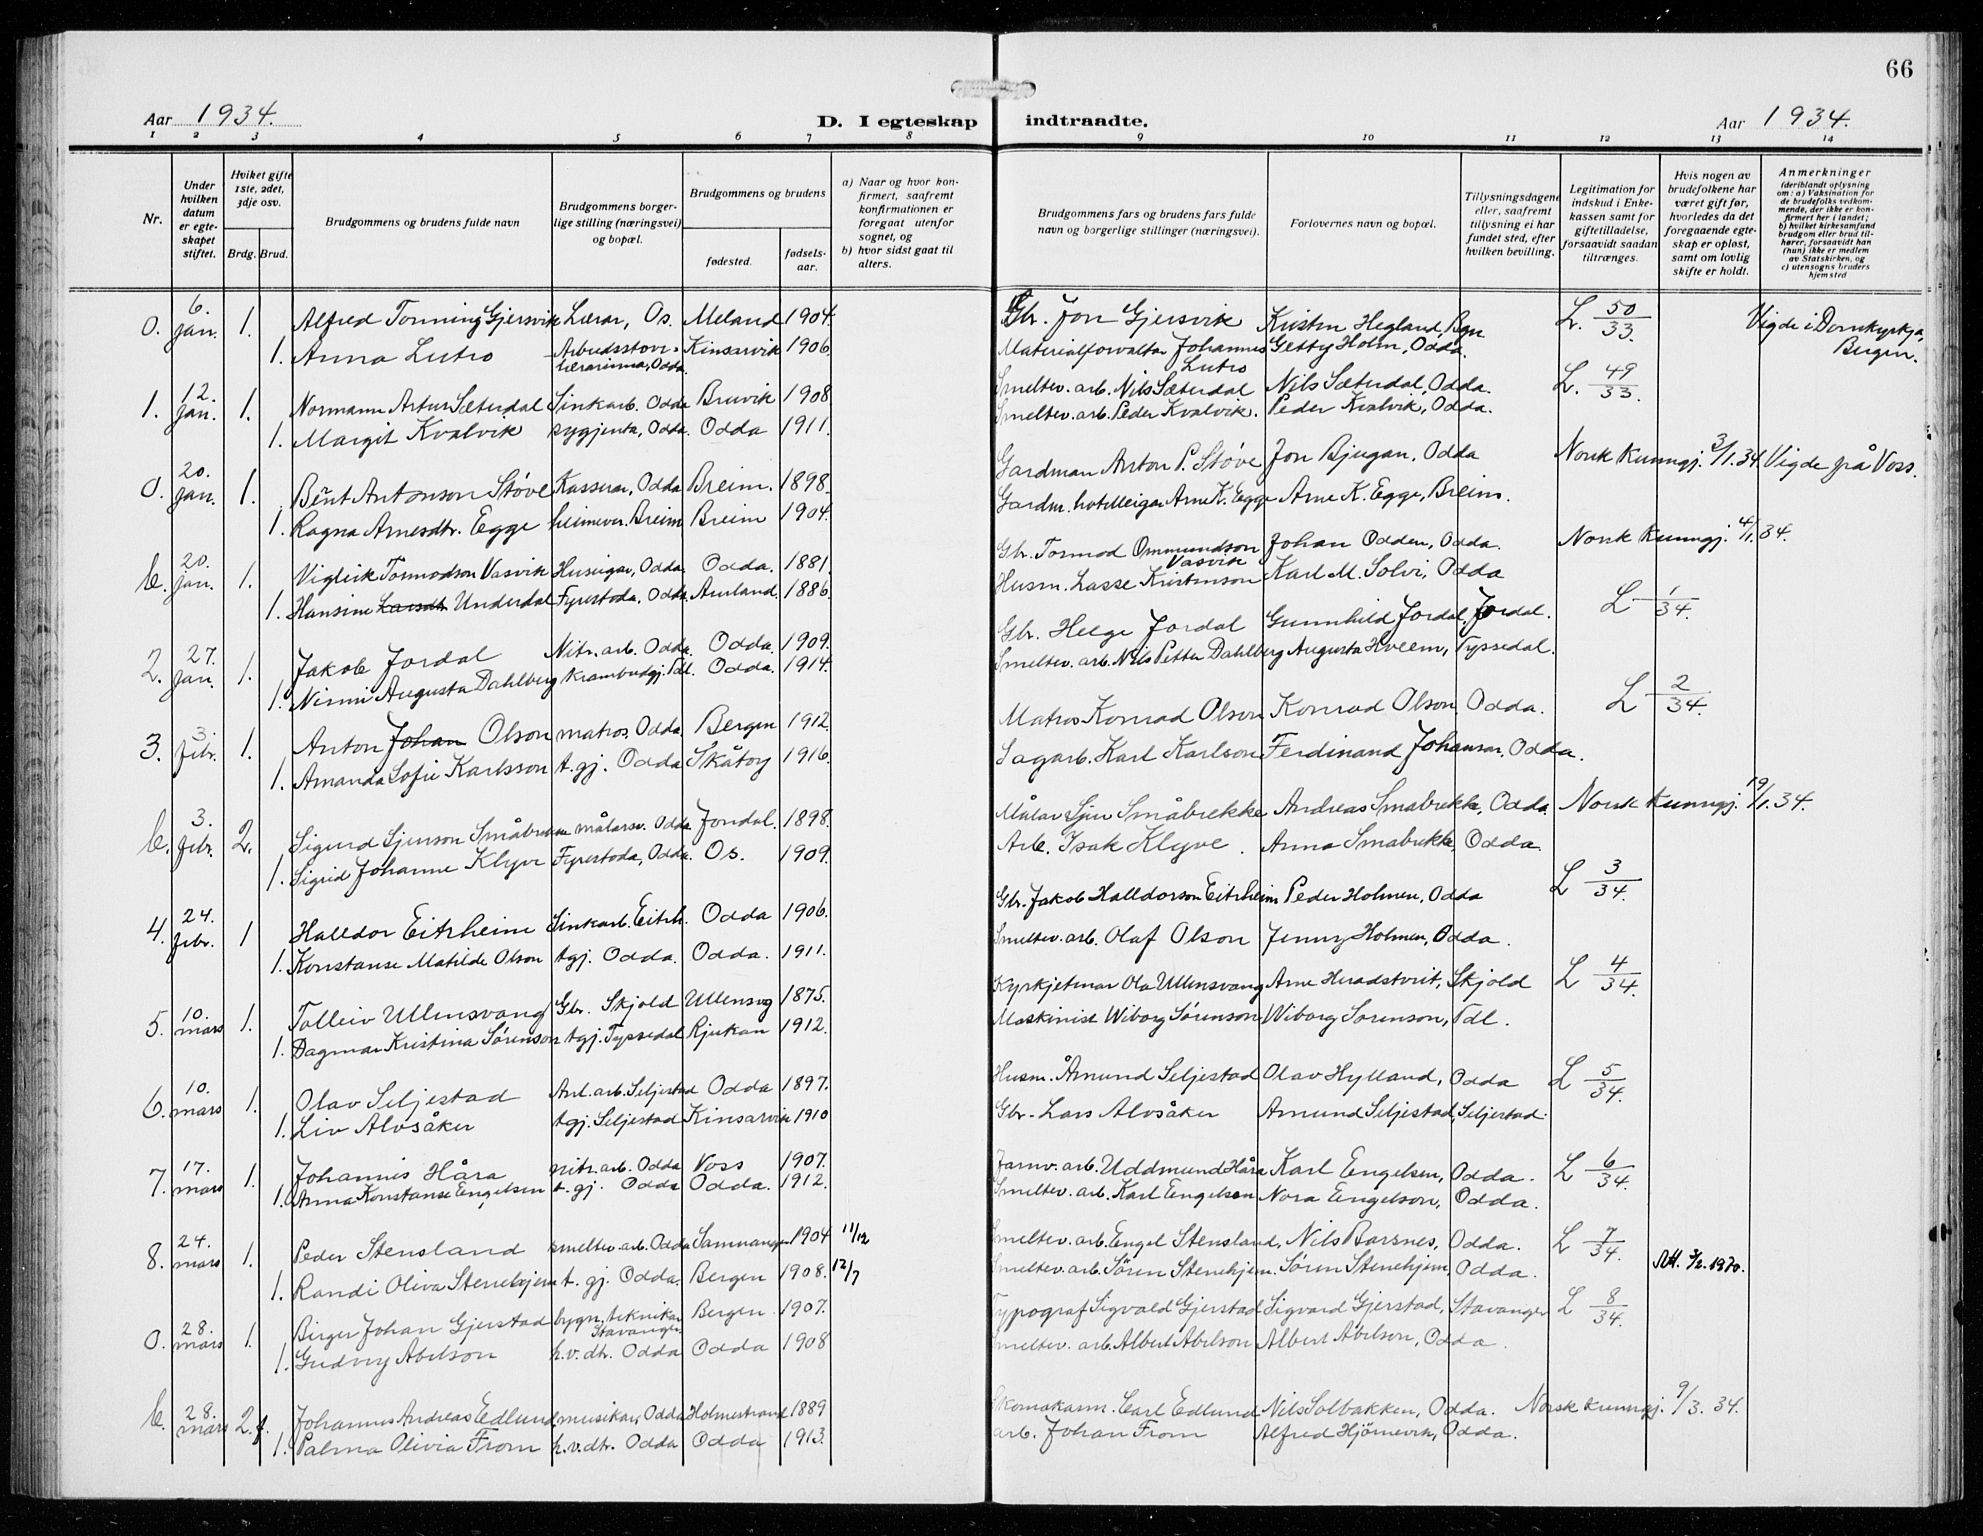 66
Aar 1934.
D. I egteskap indtraadte.
Aar 1934.
1 2 3 4 5 6 7 8 9 10 11 12 13 14
Nr.
Under hvilken datum er egteskapet stiftet.
Hviket gifte 1ste, 2det, 3dje osv.
Brdg. Brud.
Brudgommens og brudens fulde navn
Brudgommens borgerlige stilling (næringsvei) og bopæl.
Brudgommens og brudens
fødested.
fødselsaar.
a) Naar og hvor konfirmert, saafremt konfirmationen er foregaat utenfor sognet, og
b) hvor sidst gaat til alters.
Brudgommens fars og brudens fars fulde navn og borgerlige stillinger (næringsvei).
Forlovernes navn og bopæl.
Tillysningsdagene eller, saafremt tillysning ei har fundet sted, efter hvilken bevilling.
Legitimation for indskud i Enkekassen samt for giftetilladelse, forsaavidt saadan tiltrænges.
Hvis nogen av brudefolkene har været gift før, hvorledes da det foregaaende egteskap er opløst, samt om lovlig skifte er holdt.
Anmerkninger
(deriblandt oplysning om: a) Vaksination for de brudefolks vedkommende, der ikke er konfirmert her i landet; b) hvilket kirkesamfund brudgom eller brud tilhører, forsaavidt han (hun) ikke er medlem av Statskirken, og c) utensogns bruders hjemsted
0. 6. jan. 1. Alfred Tonning Gjersvik Lærar, Os. Meland 1904. Gbr. Jon Gjersvik Kristen Hegland, Bgn L. 50/33. Vigde i Domkyrkja, Bergen.
1. Anna Lutro Arbeidsstovelærarinna, Odda. Kinsarvik 1906. Materialforvaltar Johannes Lutro Getty Holm, Odda.
1. 12. jan. 1. Normann Artur Sæterdal Sinkarb. Odda Bruvik 1908 Smeltev. arb. Nils Sæterdal Nils Sæterdal, Odda. L. 49/33.
1. Margit Kvalvik sygjenta, Odda. Odda 1911. Smeltev. arb. Peder Kvalvik. Peder Kvalvik, Odda.
0. 20. jan. 1. Bernt Antonson Støve Kasserar, Odda Breim. 1898. Gardman Anton P. Støve Jon Bjugan, Odda Norsk Kunngj. 3/1.34. Vigde på Voss.
1. Ragna Arnesdtr. Egge heimever. Breim Breim 1904. Gardm. hotelleigar Arne K. Egge Arne K. Egge, Breim.
b. 20. jan. 1. Vigleik Tormodson Vasvik Huseigar, Odda. Odda. 1881. Gbr. Tormod Ommundson Vasvik Johan Odden, Odda. Norsk Kunngj. 4/1.34.
1. Hansine Larsdt. Underdal Fyrestoda, Odda. Aurland. 1886. Husm. Lasse Kristenson Karl M. Solvi, Odda
2. 27. jan. 1. Jakob Jordal Nitr. arb. Odda. Odda. 1909. Gbr. Helge Jordal Gunnhild Jordal, Jordal. L 1/34.
1. Ninni Augusta Dahlberg Krambudgj. Tdl. Odda. 1914. Smeltev. arb. Nils Petter Dahlberg Augusta Hveem, Tyssedal.
3. 3. febr. 1. Anton Johan Olson matros, Odda. Bergen 1912. Matros Konrad Olson Konrad Olson, Odda. L 2/34.
1. Amanda Sofie Karlsson t. gj. Odda Skåtøy 1916. Sagarb. Karl Karlson Ferdinand Johanson, Odda.
b. 3. febr. 2. Sigurd Sjurson Småbrekke målarsv. Odda Jondal. 1898. Målar Sjur Småbrekke Andreas Småbrekke, Odda. Norsk Kunngj. 19/1.34.
1. Sigrid Johanne Klyve Fyrestoda, Odda. Os. 1909. Arb. Isak Klyve. Anna Småbrekke, Odda.
4. 24. febr. 1 Halldor Eitrheim Sinkarb. Eitrh. Odda 1906. Gbr. Jakob Halldorson Eitrheim Peder Holmen, Odda L 3/34.
1. Konstanse Matilde Olson tgj. Odda. Odda. 1911. Smeltev. arb. Olaf Olson Jenny Holmen, Odda.
5. 10. mars 1. Tolleiv Ullensvang Gbr. Skjold Ullensvg 1875. Kyrkjetenar Ola Ullensvang Arne Heradstveit, Skjold L 4/34.
1. Dagmar Kristina Sørenson tgj. Tyssedal Rjukan 1912. Maskinist Wiborg Sørenson Wiborg Sørenson, Tdl.
6. 10. mars 1. Olav Seljestad Anl. arb. Seljestad Odda 1897. Husm. Åmund Seljestad Olav Hylland, Odda L 5/34.
1. Liv Alvsåker tgj. Seljestad Kinsarvik 1910 Gbr. Lars Alvsåker Amund Seljestad, Seljestad.
7. 17. mars 1. Johannes Håra nitr. arb. Odda Voss 1907. Jarnv. arb. Uddmund Håra Karl Engelsen, Odda. L 6/34.
1. Anna Konstanse Engelsen t. gj. Odda Odda. 1912. Smeltev. arb. Karl Engelsen Nora Engelson, Odda.
8. 24. mars 1. Peder Stensland smeltev. arb. Odda Samnanger 1904 11/12 Smeltev. arb. Engel Stensland, Nils Børsnes, Odda. L 7/34.
1. Randi Oliva Stenehjem t. gj. Odda. Bergen 1908. 12/7 Smeltev. arb. Søren Stenehjem. Søren Stenehjem, Odda. 3/2.1970.
0. 28. mars 1. Birger Johan Gjerstad bygn. teknikar Stavanger Bergen 1907. Typograf Sigvald Gjerstad Sigvard Gjerstad, Stavanger L 8/34.
1. Gudny Abelson h.v.dtr. Odda Odda 1908 Smeltev. arb. Albert Abelson Albert Abelson, Odda.
b. 28. mars 2. f. Johannes Andreas Edlund musikar, Odda Holmestrand 1889 Skomakarm. Carl Edlund Nils Solbakken, Odda. Norsk kunngj. 9/3.34.
1. Palma Olivia From h.v.dtr. Odda Odda 1913. arb. Johan From Alfred Hjørnevik, Odda.